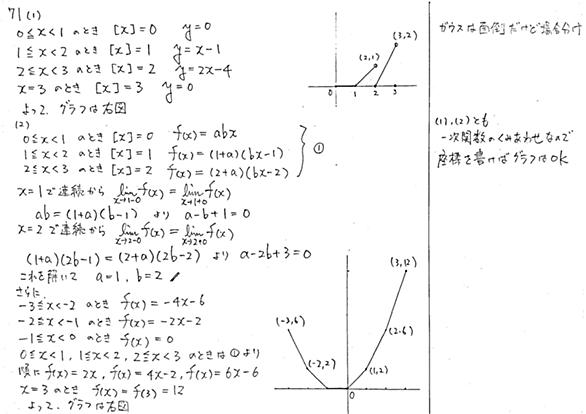 71 (1)
0≦x<1 のとき [x]=0 y=0
1≦x<2 のとき [x]=1 y=x-1
2≦x<3 のとき [x]=2 y=2x-4
x=3 のとき [x]=3 y=0
よって、グラフは右図
(3,2)
(2,1)
0 1 2 3
(2)
0≦x<1 のとき [x]=0 f(x)=abx
1≦x<2 のとき [x]=1 f(x)=(1+a)(bx-1)
2≦x<3 のとき [x]=2 f(x)=(2+a)(bx-2)
①
x=1で連続から lim x→1-0 f(x) = lim x→1+0 f(x)
ab=(1+a)(b-1) より a-b+1=0
x=2で連続から lim x→2-0 f(x) = lim x→2+0 f(x)
(1+a)(2b-1)=(2+a)(2b-2) より a-2b+3=0
これを解いて a=1, b=2
さらに、
-3≦x<-2 のとき f(x)=-4x-6
-2≦x<-1 のとき f(x)=-2x-2
-1≦x<0 のとき f(x)=0
0≦x<1, 1≦x<2, 2≦x<3 のときは①より
順に f(x)=2x, f(x)=4x-2, f(x)=6x-6
x=3 のとき f(x)=f(3)=12
よって、グラフは右図
(3,12)
(-3,6)
(2,6)
(-2,2)
(1,2)
0
ガウスは面倒だけど場合分け
(1),(2)とも
一次関数のくみあわせなので
座標を書けばグラフはOK